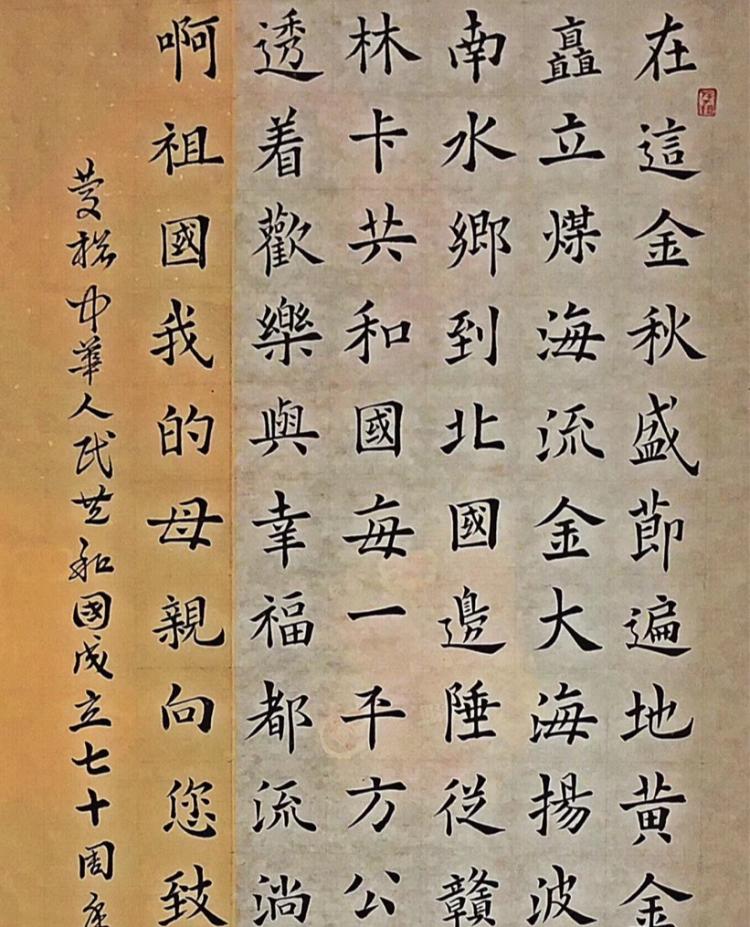 在這金秋盛節遍地黄金
矗立煤海流金大海揚波
南水鄉到北國邊陲從贛
林卡共和國每一平方公
透着歡樂與幸福都流淌
啊祖國我的母親向您致
慶祝中華人民共和國成立七十周